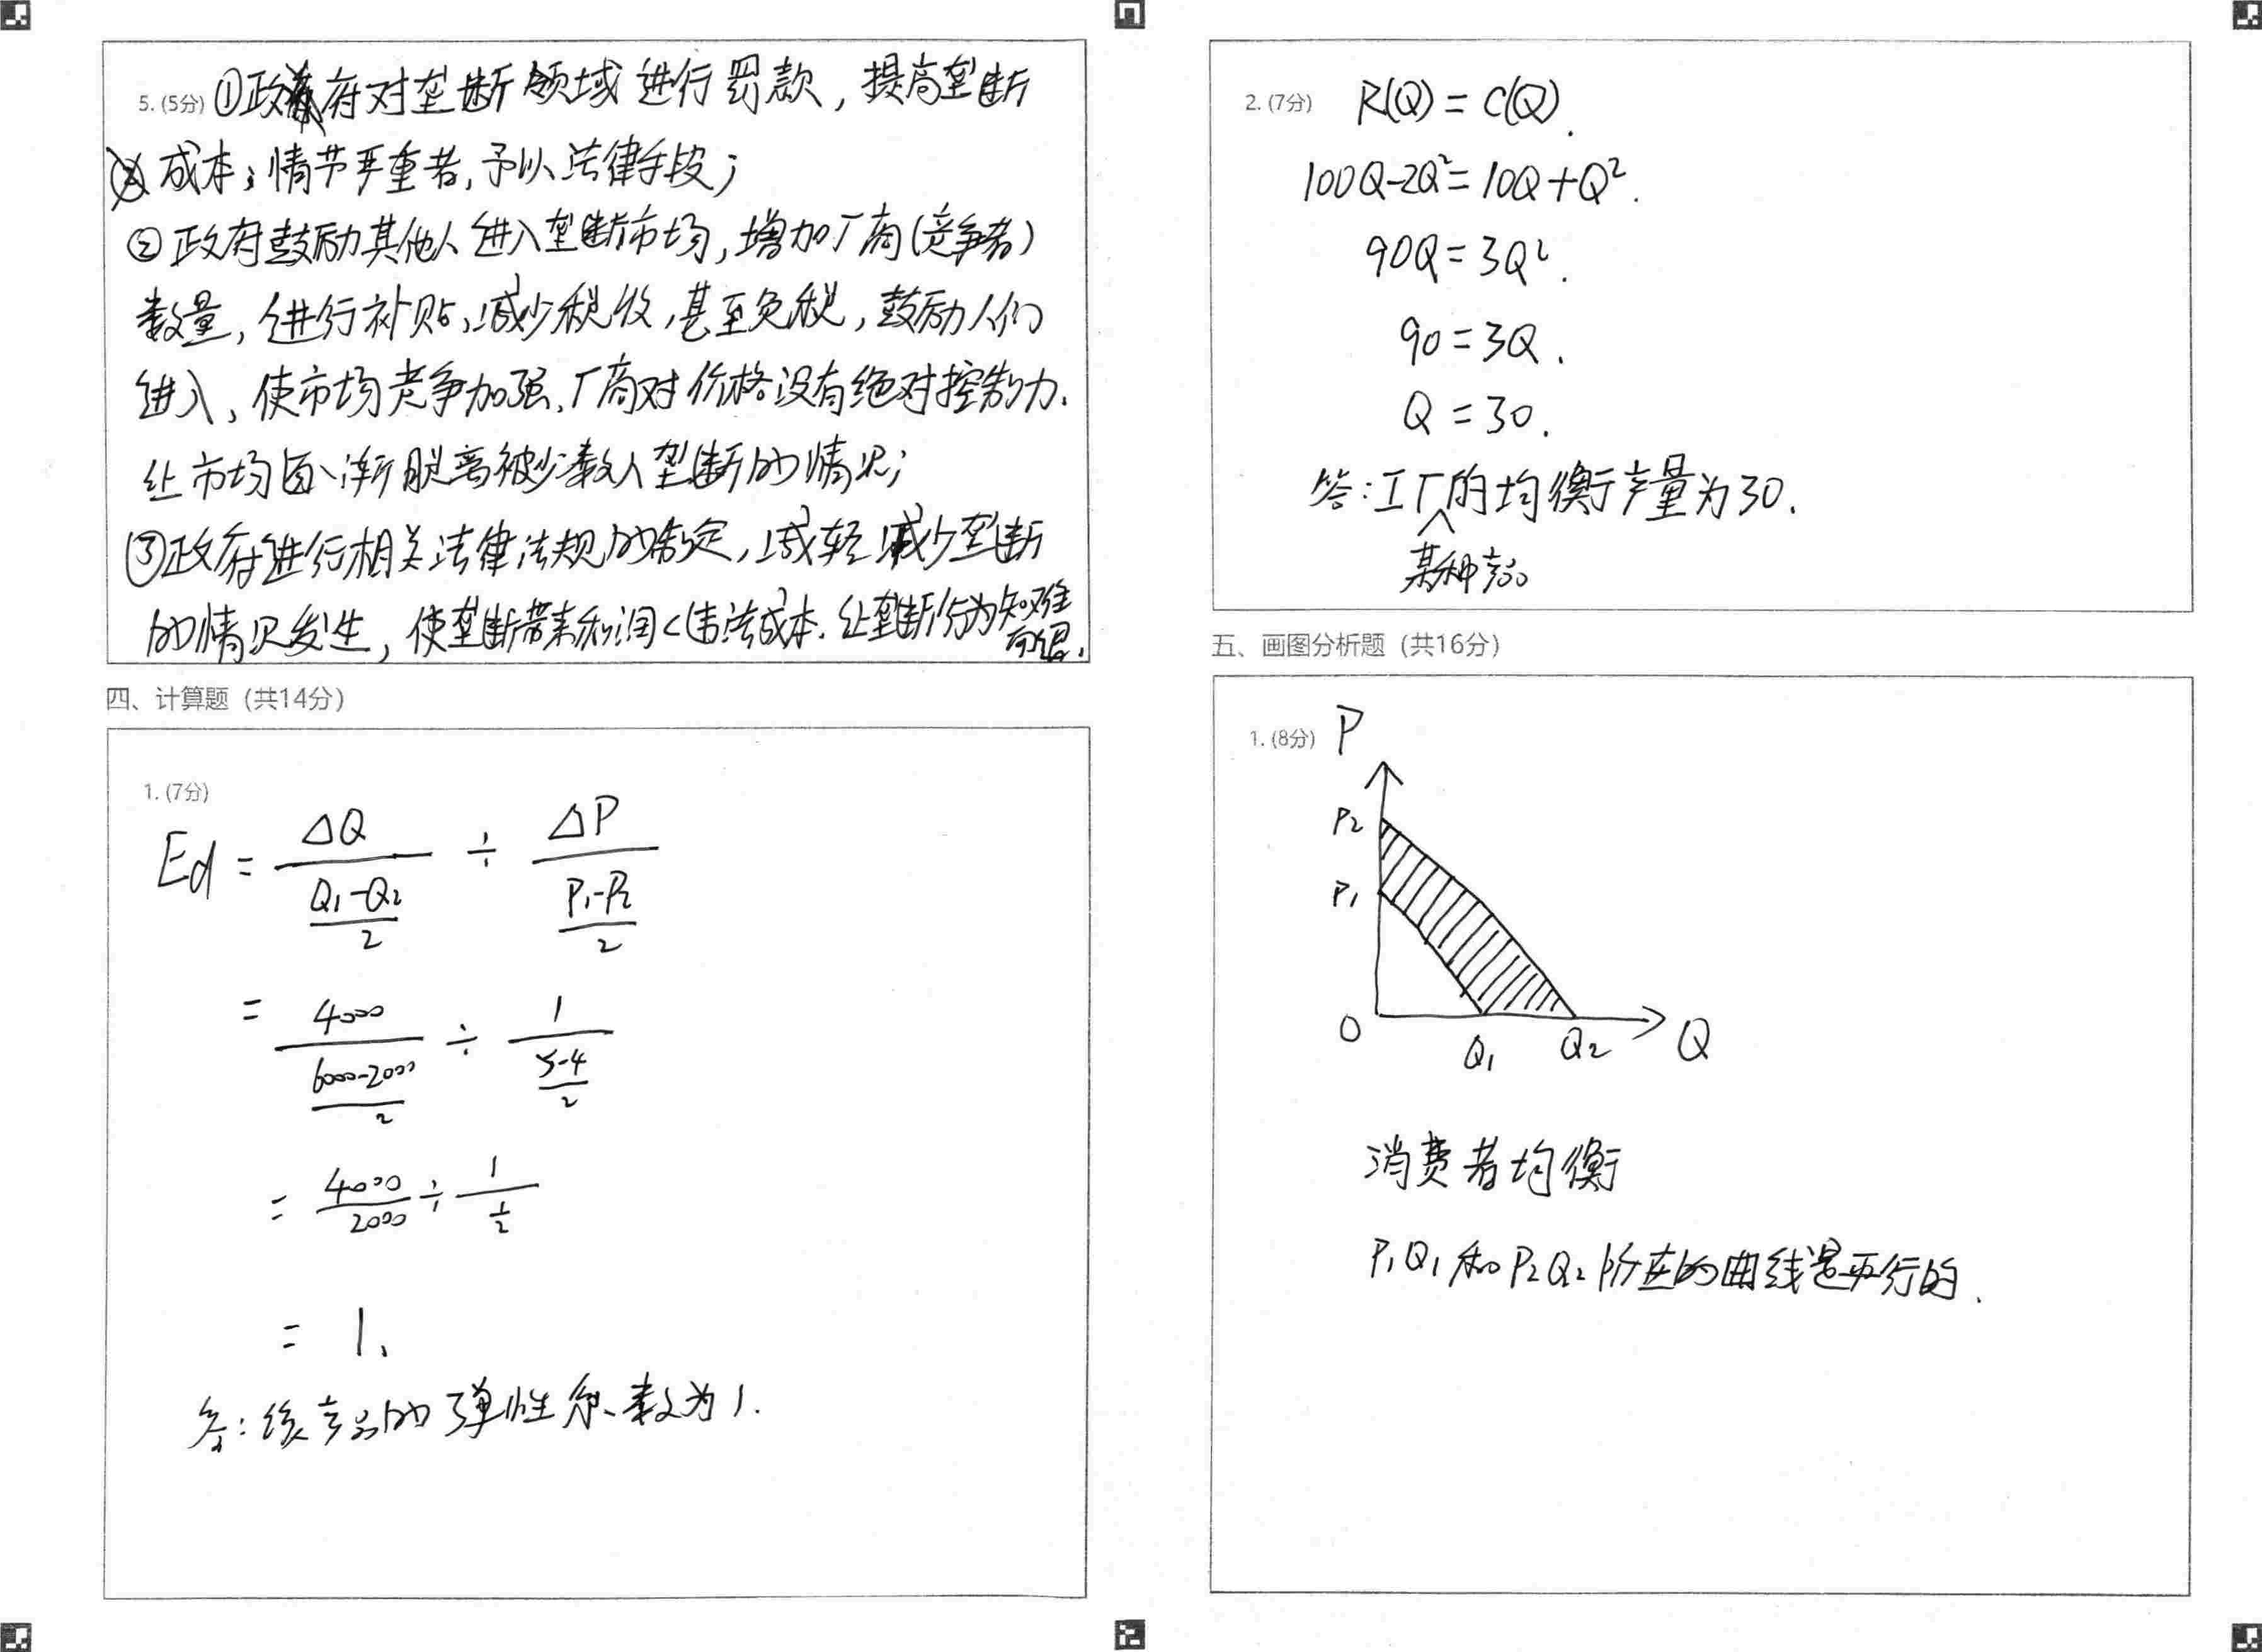 5. (5分) ①政府对垄断领域进行罚款，提高垄断
成本；情节严重者，予以法律手段；
②政府鼓励其他人进入垄断市场，增加厂商(竞争者)
数量，进行补贴，减少税收，甚至免税，鼓励人们
进入，使市场竞争加强，厂商对价格没有绝对控制力.
让市场逐渐脱离被少数人垄断的情况；
③政府进行相关法律法规的制定，减轻减少垄断
的情况发生，使垄断带来利润<违法成本. 让垄断行为知难
而退.
四、计算题（共14分）
1. (7分)
Ed = ΔQ / ((Q₁-Q₂)/2) ÷ ΔP / ((P₁-P₂)/2)
= 4000 / ((6000-2000)/2) ÷ 1 / ((5-4)/2)
= 4000/2000 ÷ 1/(1/2)
= 1.
答：该产品的弹性系数为1.
2. (7分) R(Q) = C(Q).
100Q-2Q²=10Q+Q².
90Q=3Q².
90=3Q.
Q=30.
答：工厂的均衡产量为30.
某种产品
五、画图分析题（共16分）
1. (8分) P
P₂
P₁
O Q₁ Q₂ Q
消费者均衡
P₁Q₁和P₂Q₂所在的曲线是平行的.